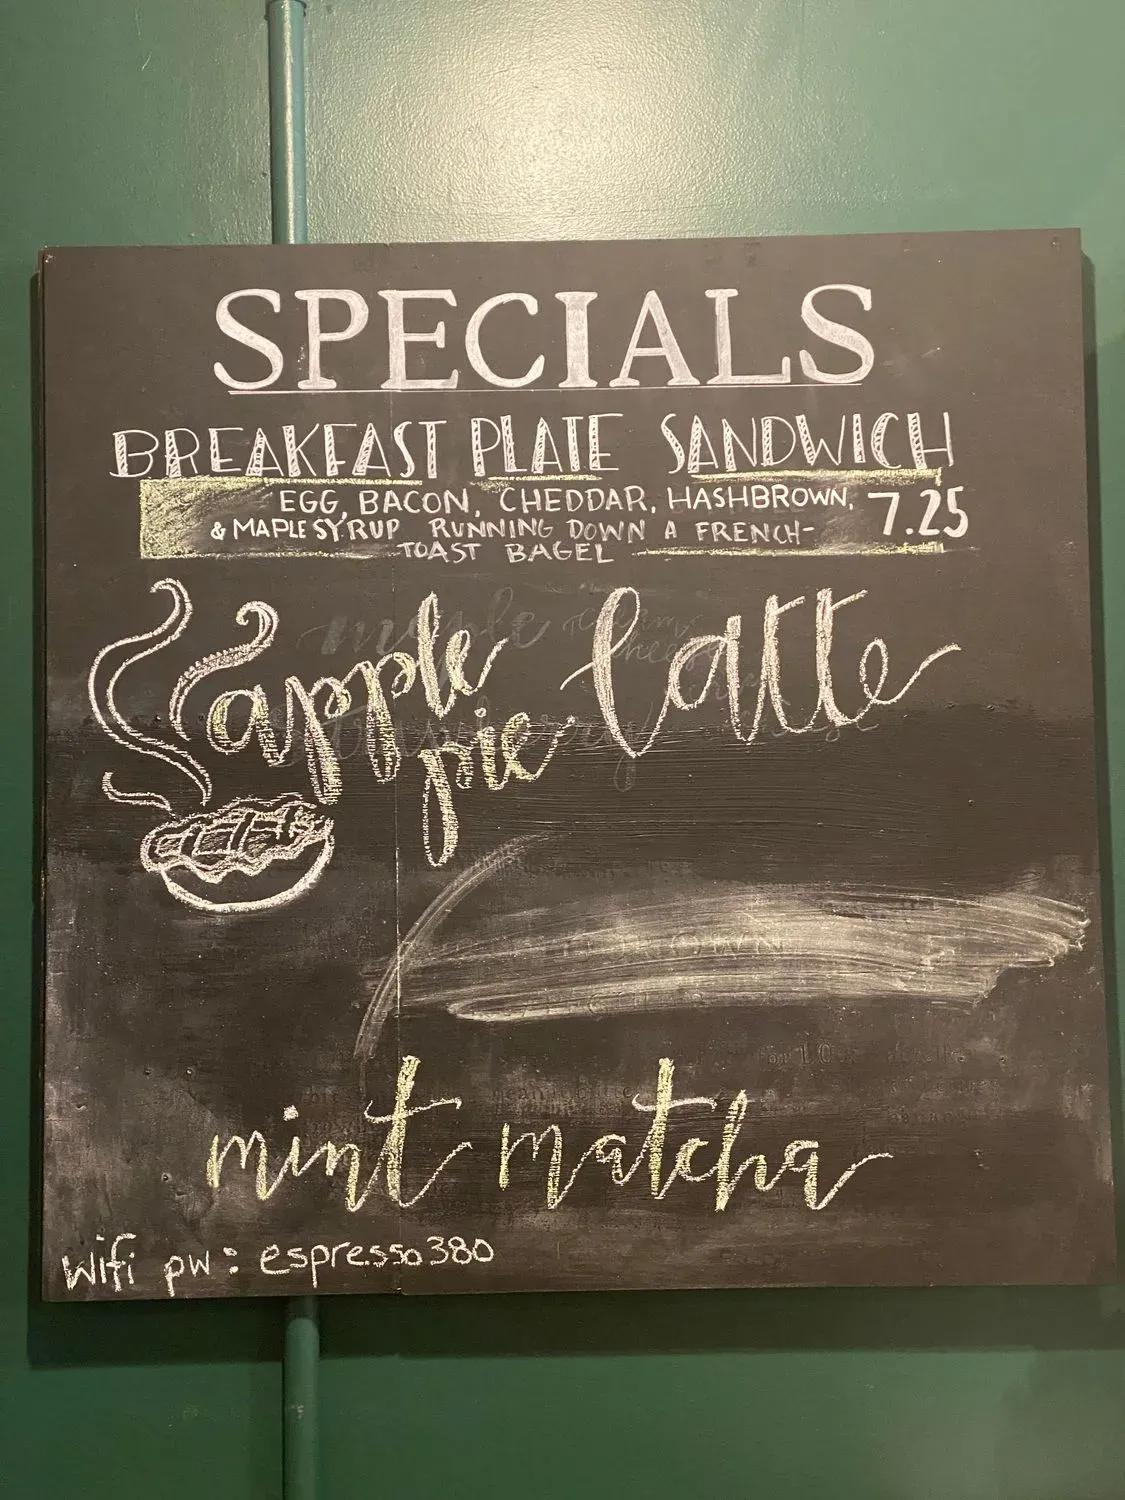 SPECIALS
BREAKFAST PLATE SANDWICH
EGG, BACON, CHEDDAR, HASHBROWN, 7.25
& MAPLE SYRUP RUNNING DOWN A FRENCH-
TOAST BAGEL
apple latte
pie
mint matcha
wifi pw: espresso380